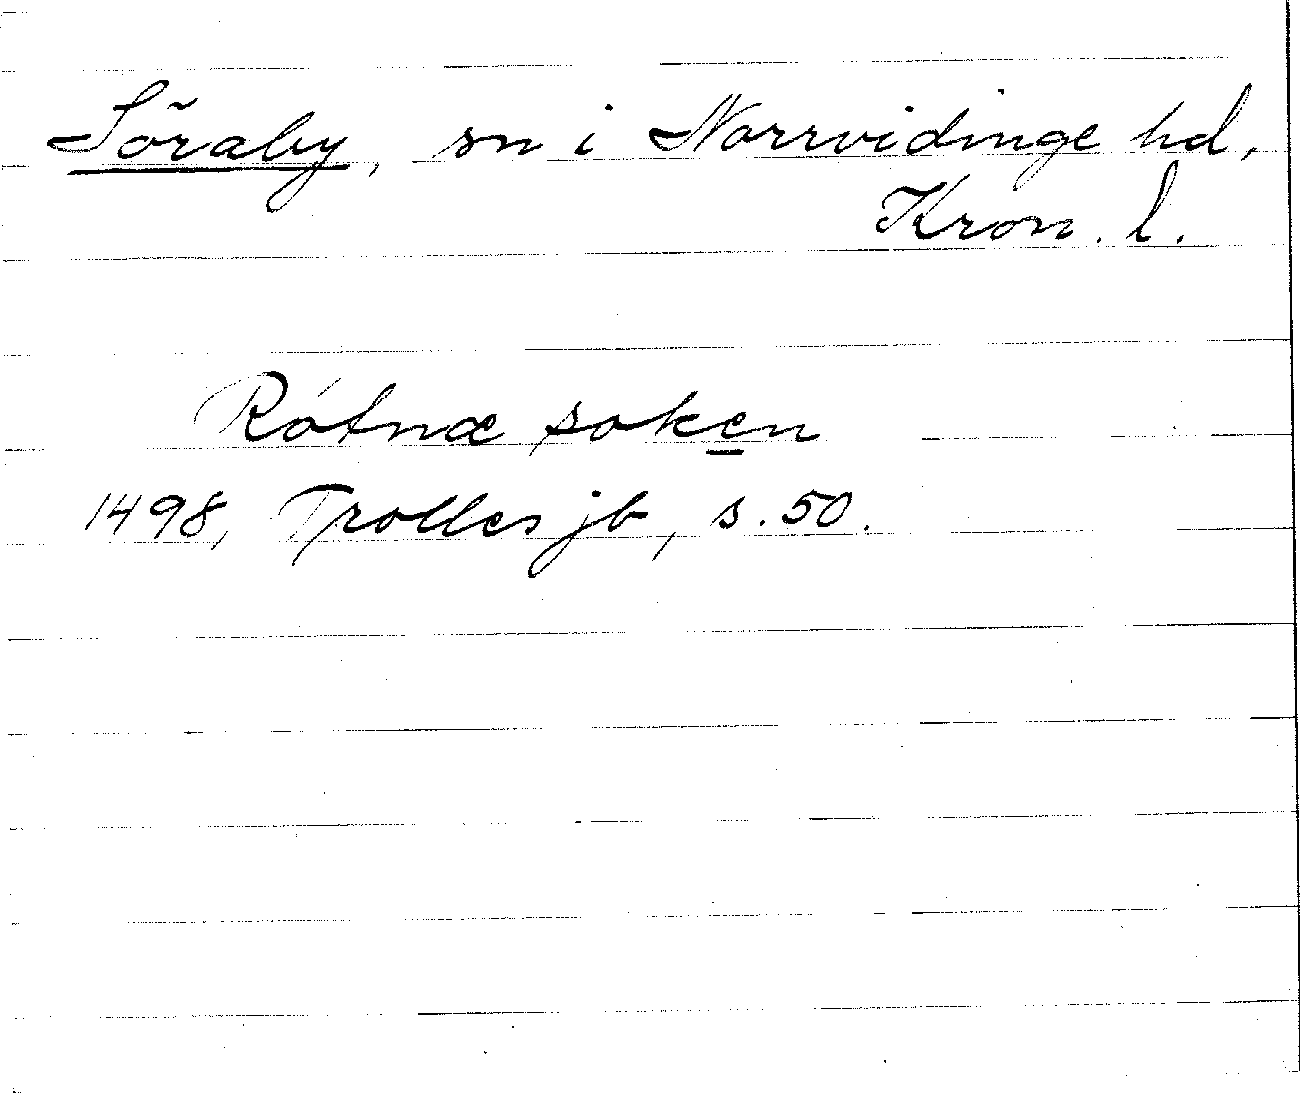 Söraby, sn i Norrvidinge hd,
Kron. l.
Rótnæ soken
1498, Trolles jb, s. 50.